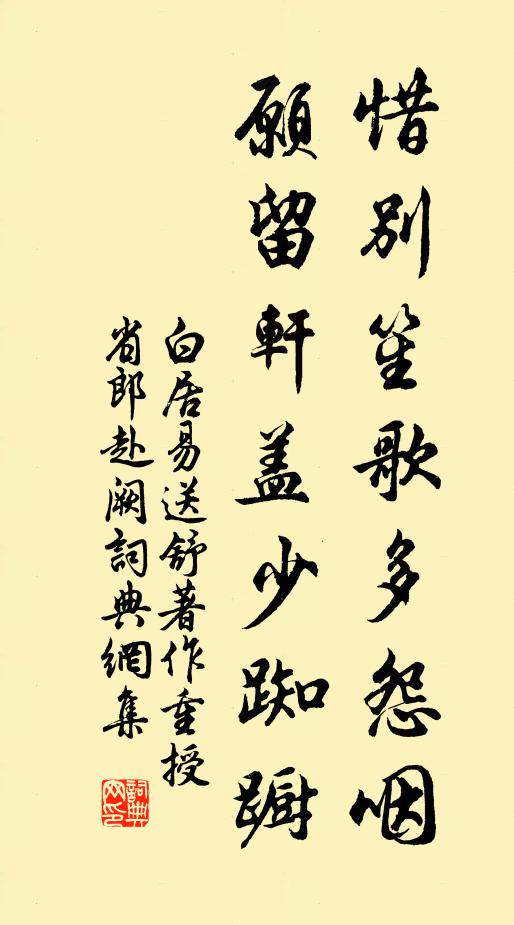 惜别笙歌多怨咽
願留軒盖少踟蹰
白居易送舒著作重授
省郎赴阙詞典網集
詞典
网印